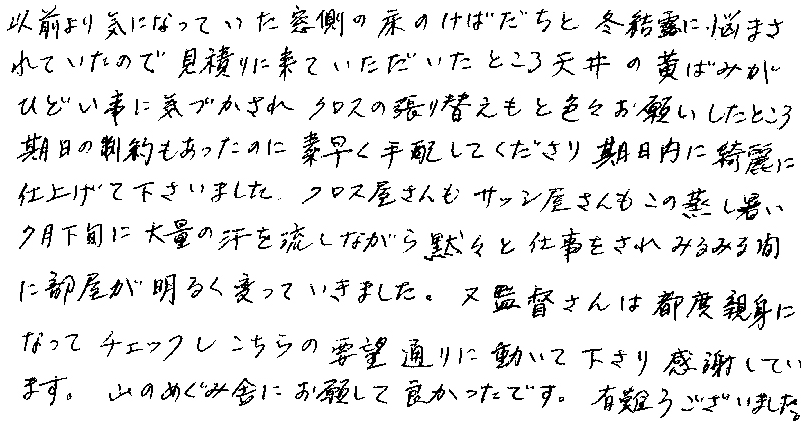 以前より気になっていた窓側の床のけばだちと冬結露に悩まさ
れていたので見積りに来ていただいたところ天井の黄ばみが
ひどい事に気づかされクロスの張り替えもと色々お願いしたところ
期日の制約もあったのに素早く手配してくださり期日内に綺麗に
仕上げて下さいました。クロス屋さんもサッシ屋さんもこの蒸し暑い
7月下旬に大量の汗を流しながら黙々と仕事をされみるみる間
に部屋が明るく変っていきました。又監督さんは都度親身に
なってチェックしこちらの要望通りに動いて下さり感謝してい
ます。山のめぐみ舎にお願して良かったです。有難うございました。